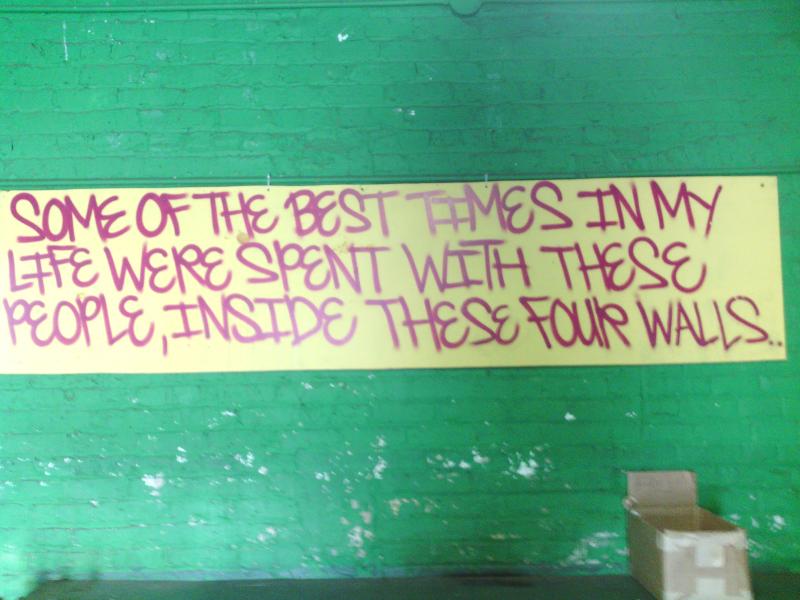 SOME OF THE BEST TIMES IN MY
LIFE WERE SPENT WITH THESE
PEOPLE, INSIDE THESE FOUR WALLS..